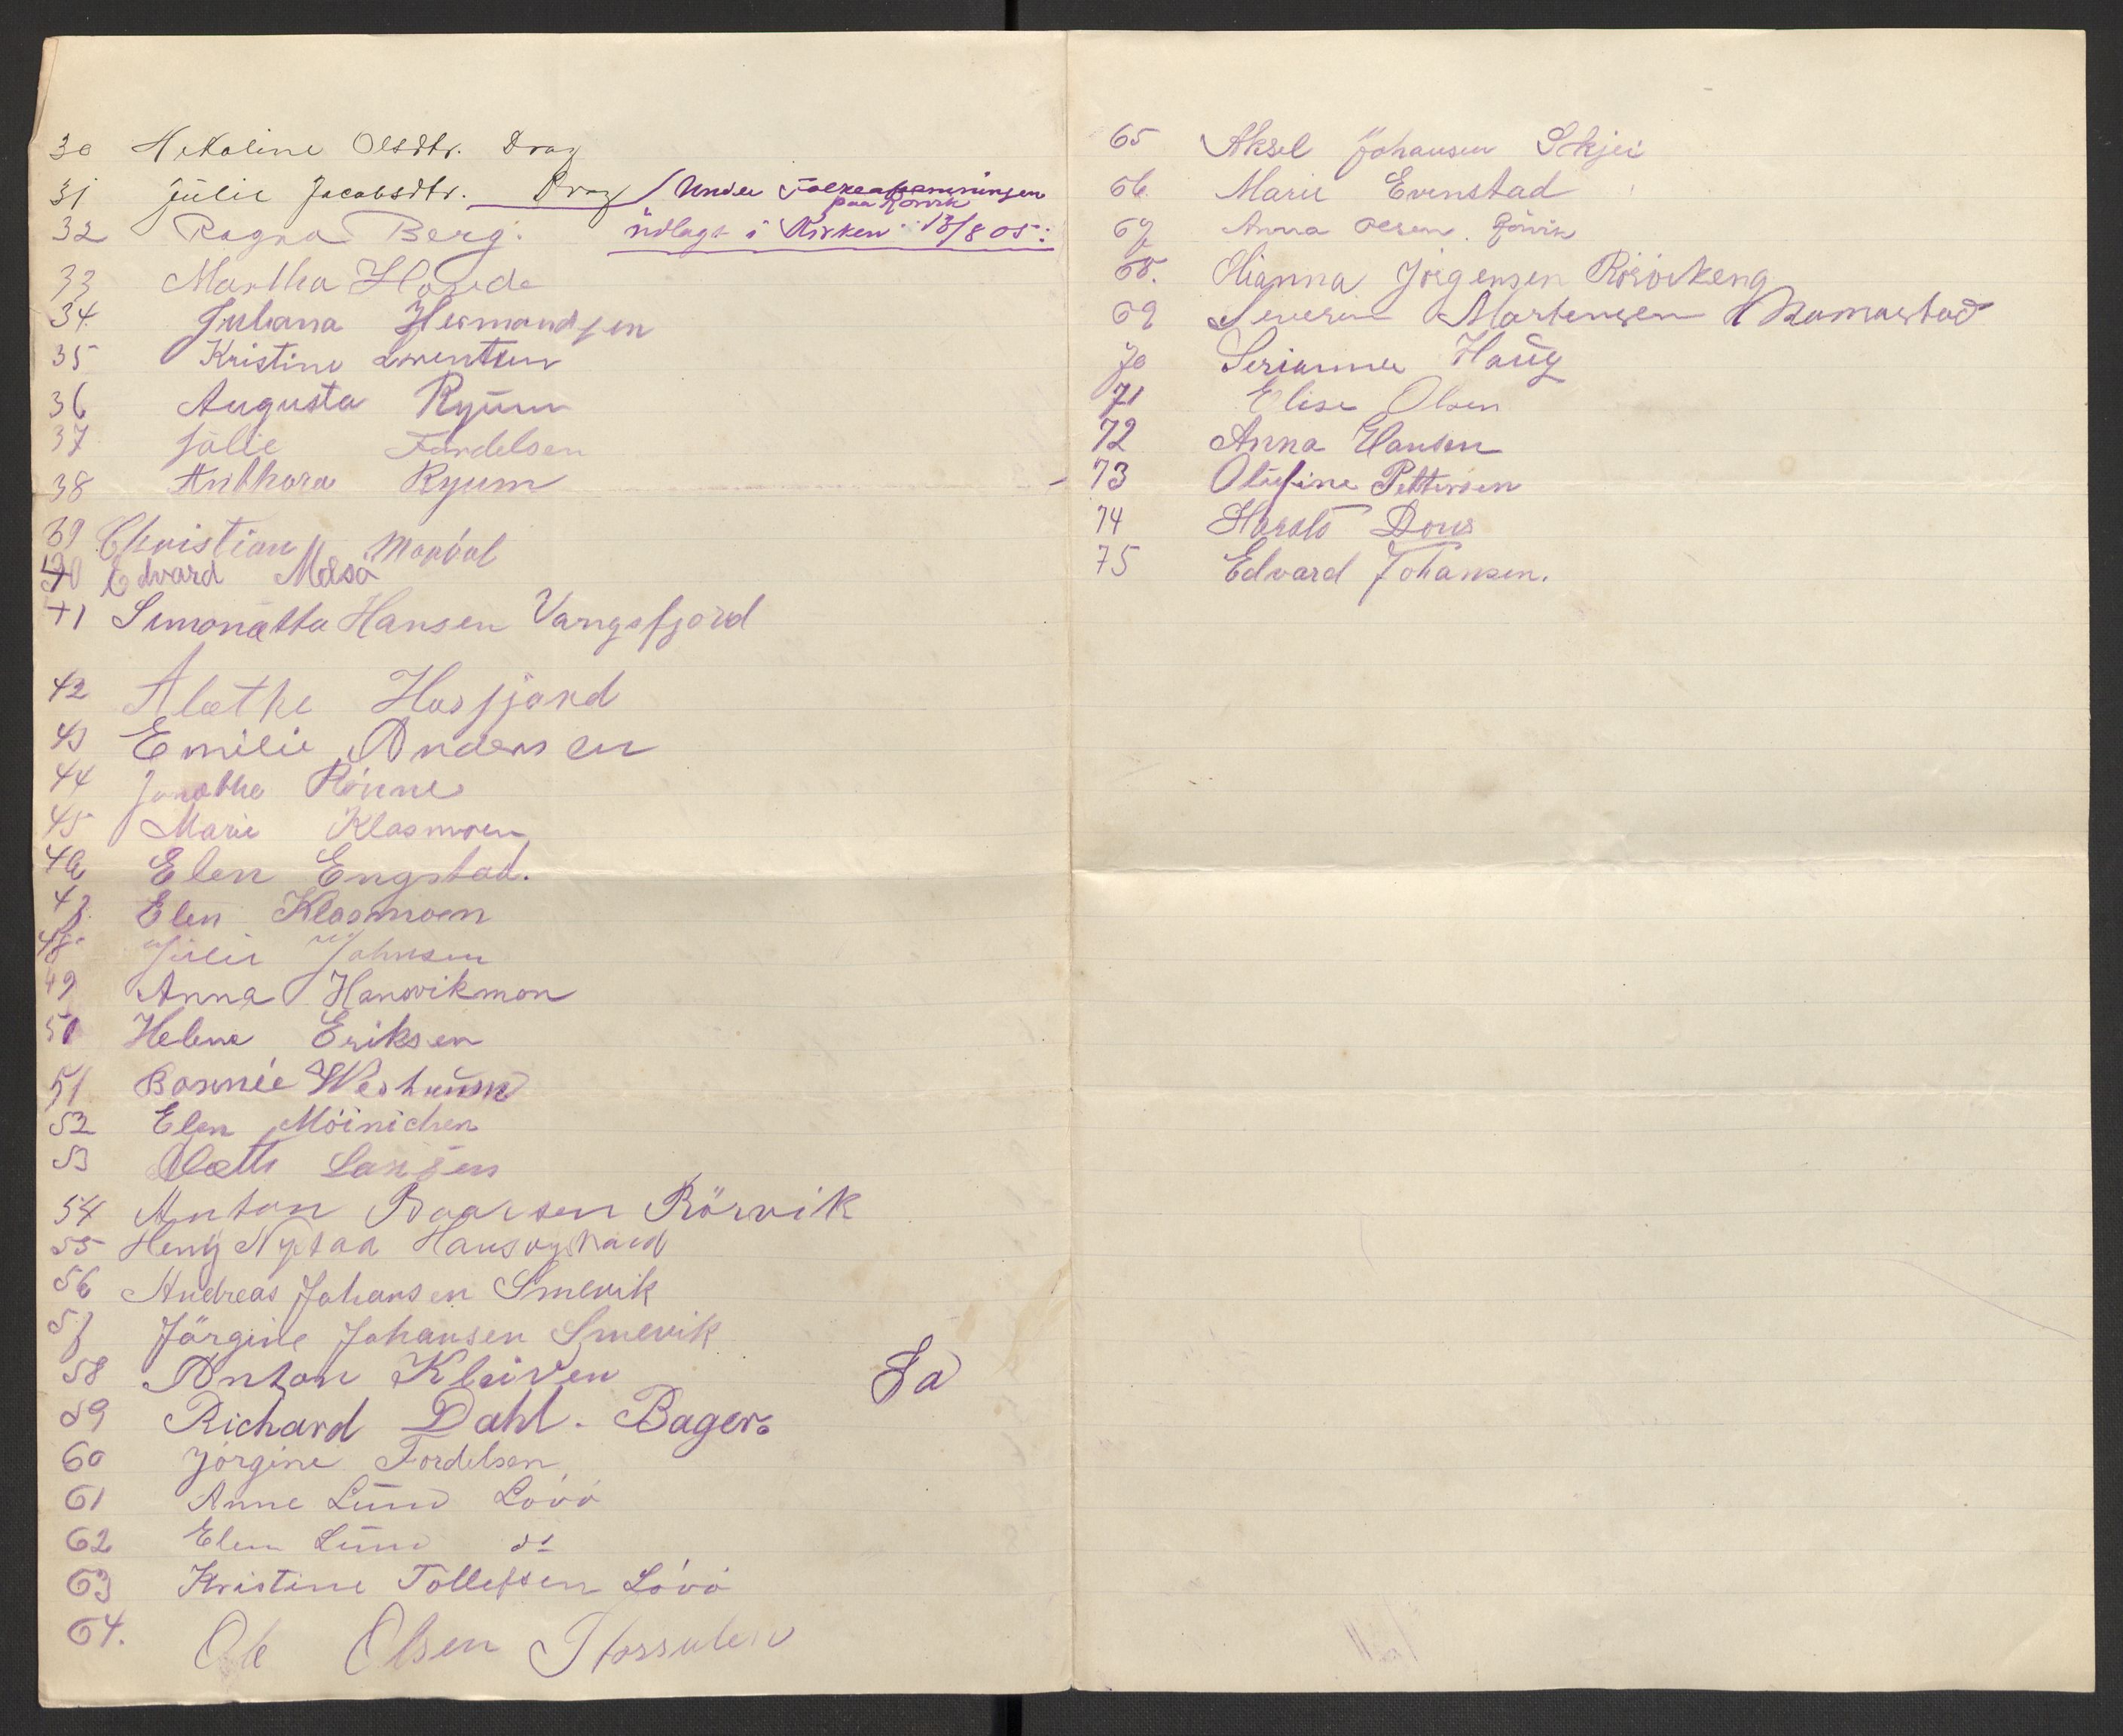 30 Nikoline Olsdtr. Drag
31 Julie Jacobsdtr. Drag / Under Folkeafstemningen
paa Rörvik
32 Ragna Berg. udlagt i Kirken 13/8 05:
33 Martha Hovde
34. Juliana Hermandsen
35 Kristine Lorentsen
36 Augusta Ryum
37 Julie Fordelsen
38 Anthhora Ryum
39 Christian
40 Edvard
41 Simonætta Hansen Vangsfjord
42 Alethe Hosfjord
43 Emilie Andersen
44 Jonethe Rönne
45 Marie Klasmoen
46 Elen Engstad.
47. Elen Klasmoen
48. Julie Johnsen
49 Anna Hansvikmon
50 Helene Eriksen
51 Bonnie
52 Elen Möinichen
53 Larsen
54 Anton Baarsen Rörvik
55
56 Andreas Johansen Smevik
57 Jörgine Johansen Smevik
58 Anton Kleiven Ja
59 Richard Dahl. Bager.
60 Jörgine Fordelsen
61 Anne Lund Lövö
62 Elen Lund do
63 Kristine Tollefsen Lövö
64. Ole Olsen
65 Aksel Johansen Skjei
66. Marie Evenstad
67 Anna Olsen. Rörvik
68. Jörgensen
69 Severin Martensen Ramarstad
70 Serianna Haug
71 Elise Olsen
72 Anna Hansen
73 Olufine Pettersen
74 Harald
75 Edvard Johansen.